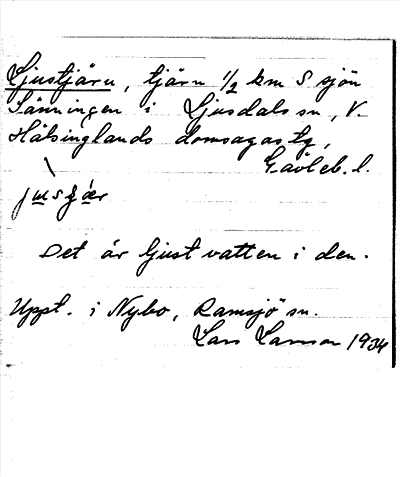 Ljustjärn, tjärn 1/2 km S sjön
Tänningen i Ljusdals sn, V.
Hälsinglands domsagas tg,
Gävleb. l.
Det är ljust vatten i den.
Uppt. i Nybo, Ramsjö sn.
Lars Larsson 1934